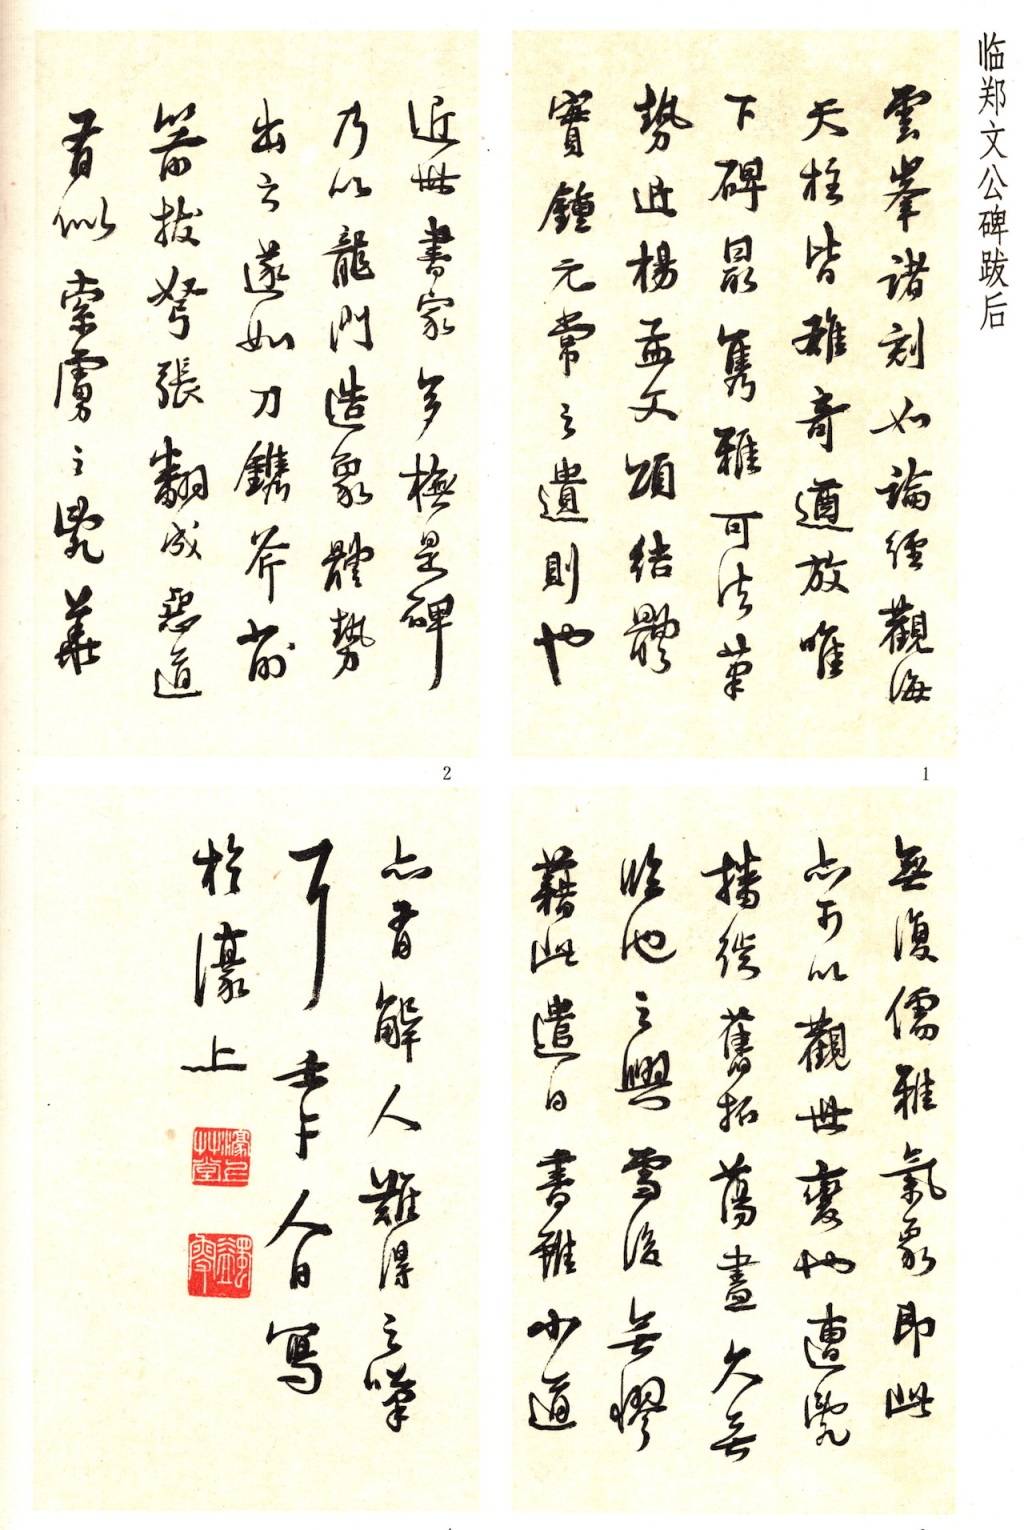 临郑文公碑跋后
雲峯諸刻如論經觀海
天柱皆雄奇遒放唯
下碑最雋雅可法筆
勢近楊孟文頌結體
實鍾元常之遺則也
1
近世書家多橅是碑
乃以龍門造象體勢
出之遂如刀鐫斧削
箭拔弩張翻成惡道
有似索虜之亂華
2
無復儒雅氣象即此
亦可以觀世變也遭亂
播徙舊拓蕩盡久無
臨池之興雪後無憀
藉此遣日書雖小道
亦有解人難得之嘆
耳 壬午人日寫
於濠上
濠上草堂